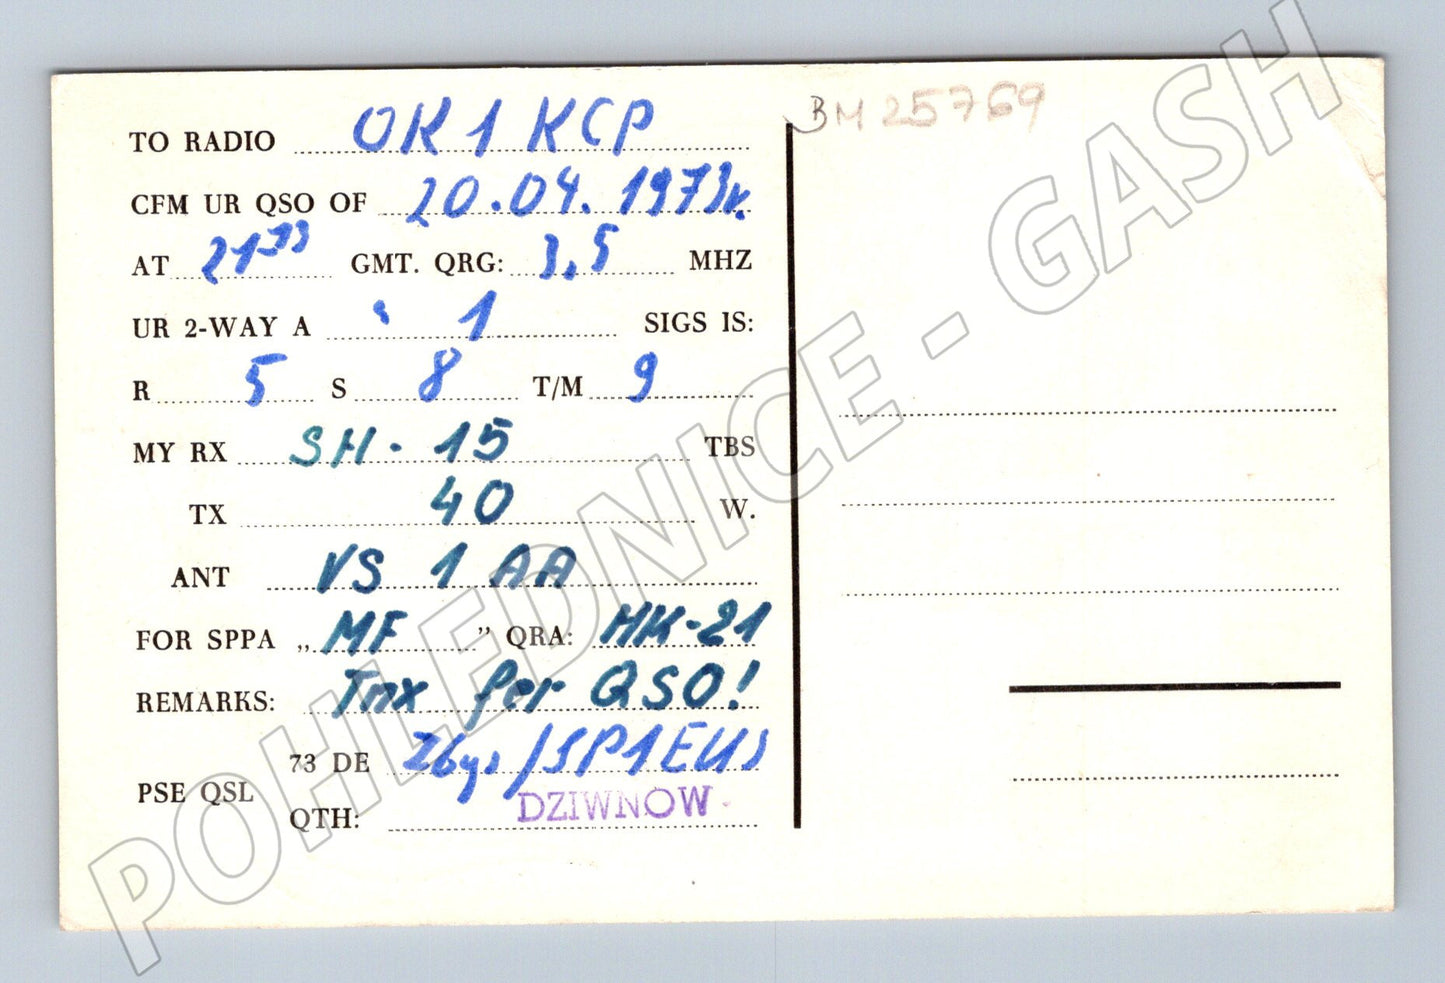 BM 25769
TO RADIO OK1KCP
CFM UR QSO OF 20.04.1973r.
AT 21³³ GMT. QRG: 3,5 MHZ
UR 2-WAY A 1 SIGS IS:
R 5 S 8 T/M 9
MY RX SH-15 TBS
TX 40 W.
ANT VS1AA
FOR SPPA „MF” QRA: HK-21
REMARKS: Tnx for QSO!
PSE QSL
73 DE Zbys/SP1EUS
QTH: DZIWNOW
POHLEDNICE - GASH